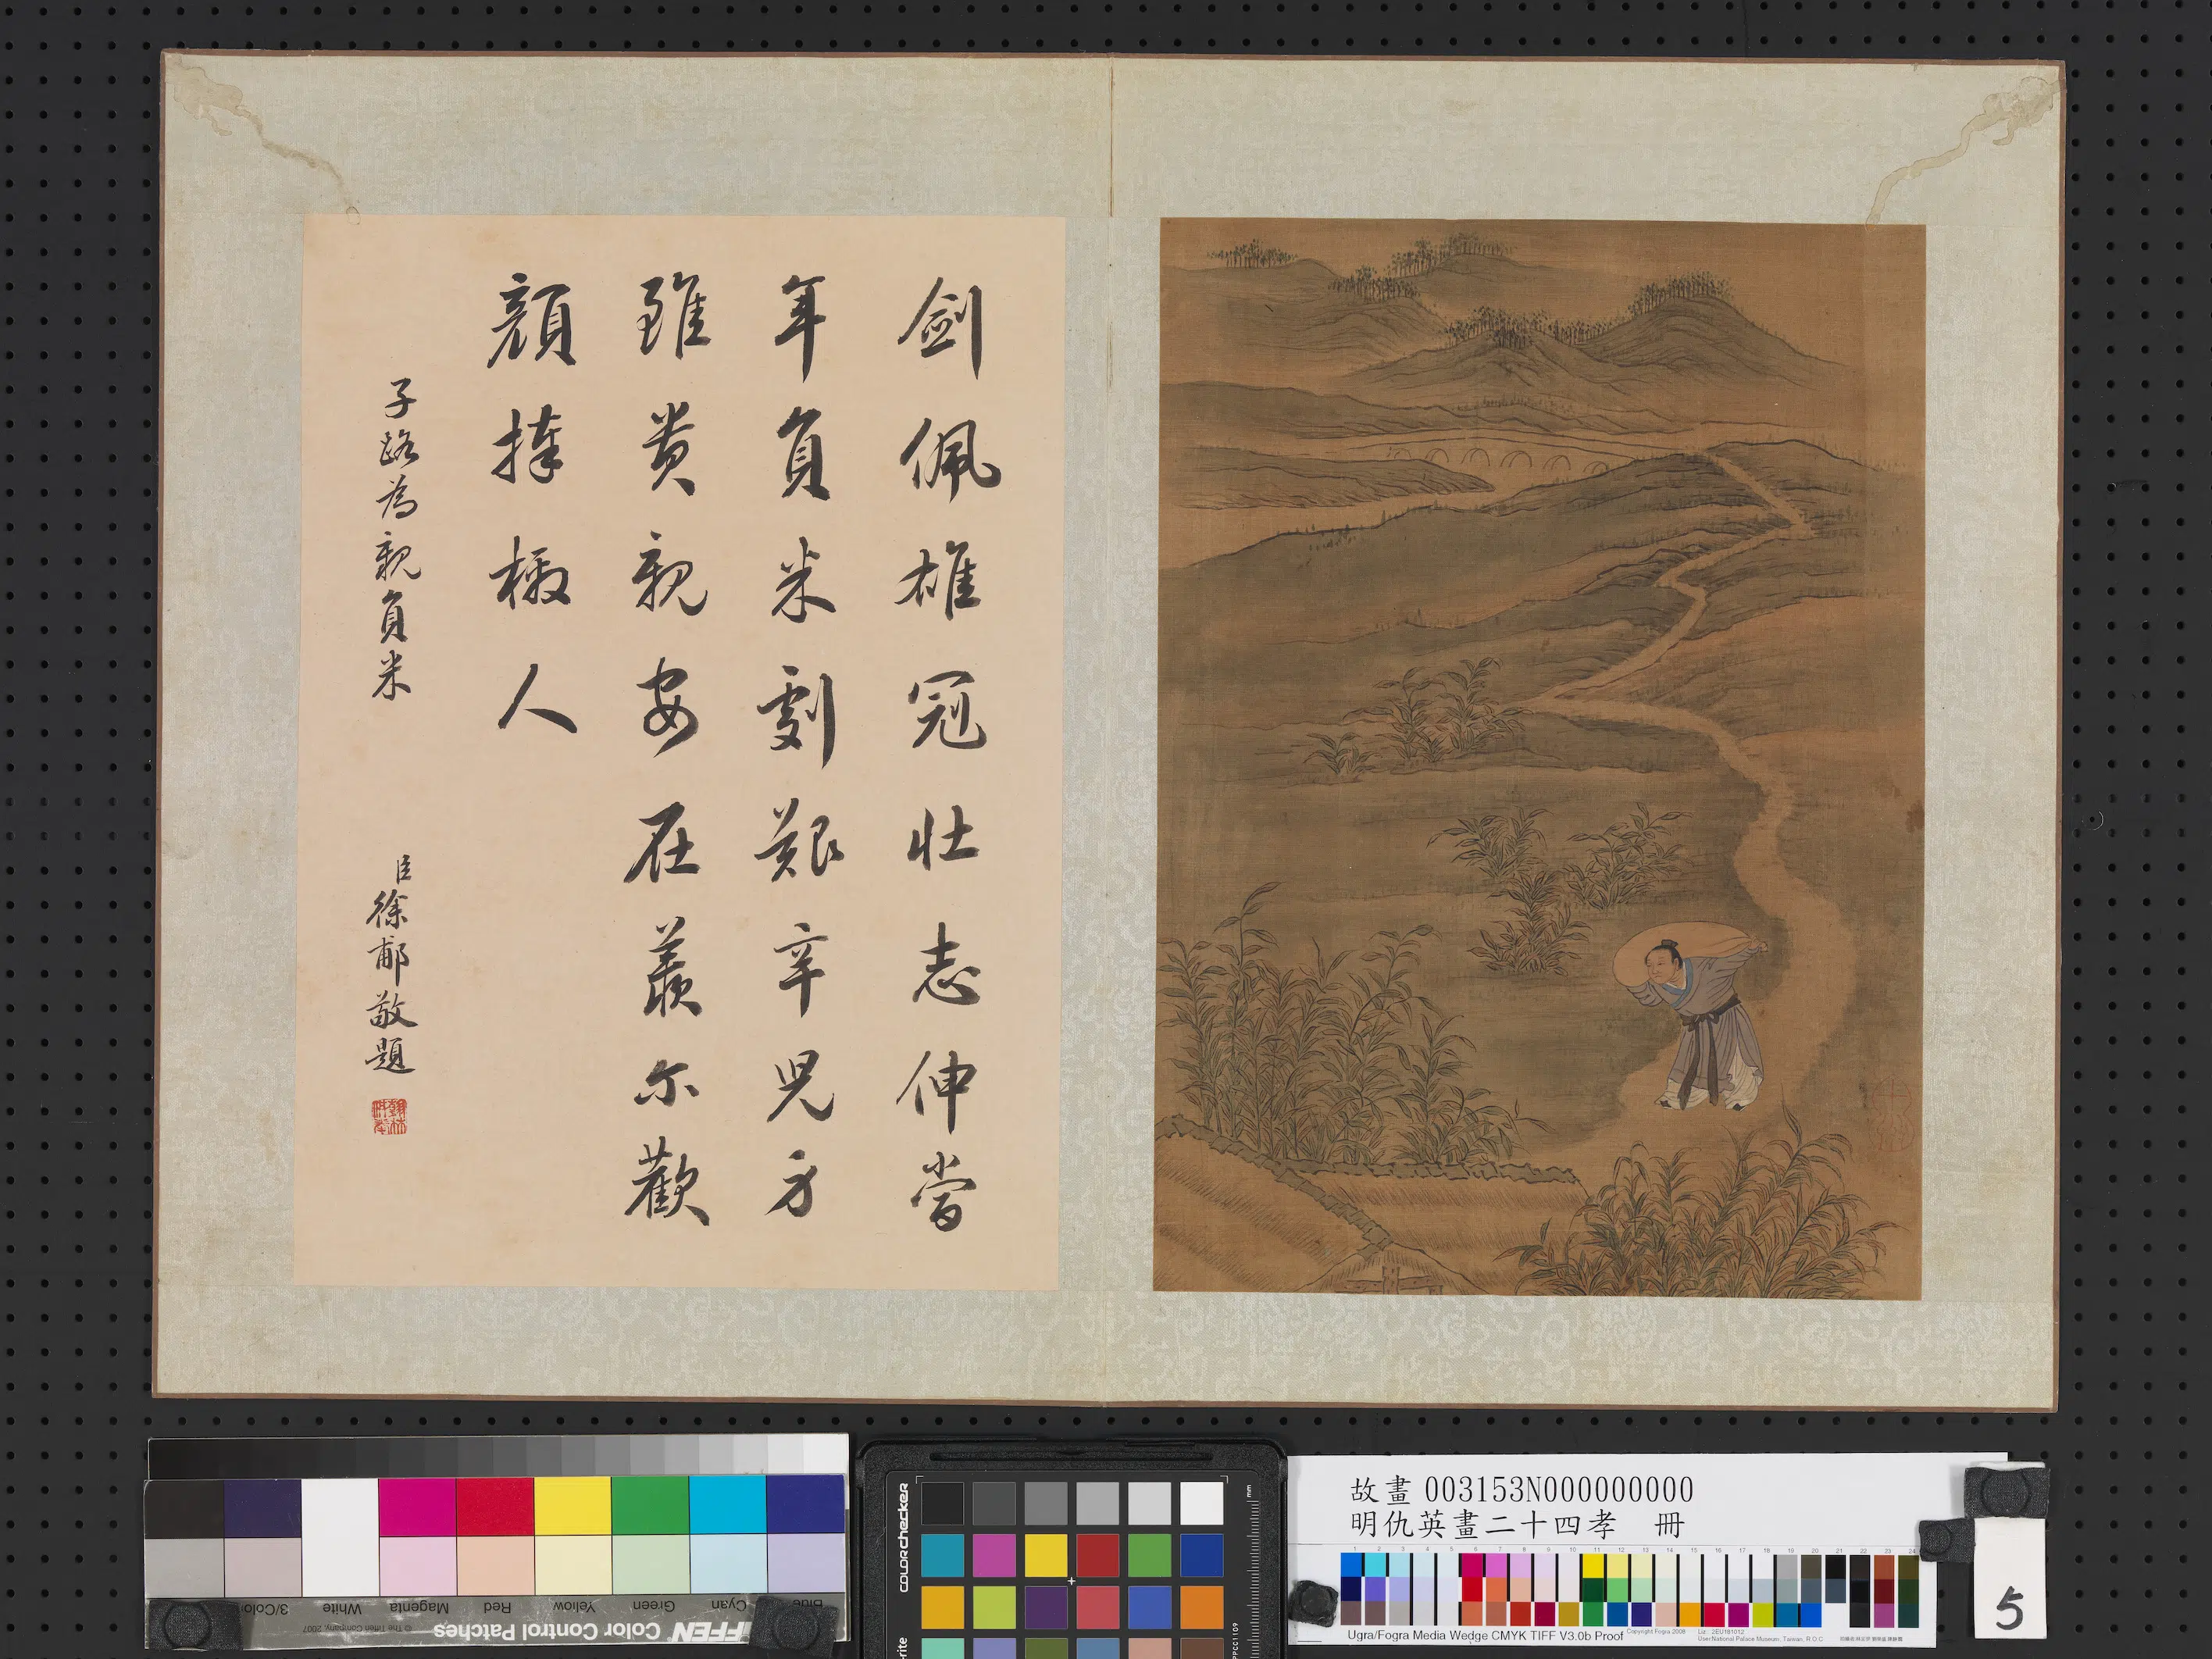 劍佩雄冠壯志伸當
年負米劇艱辛兒方
雖貴親安在羨尓歡
顏捧檄人
子路為親負米
臣徐郙敬題
故畫 003153N000000000
明仇英畫二十四孝 冊
5
Blue Cyan Green Yellow Red Magenta White 3/Color
Color Control Patches
© The Tiffen Company, 2007
colorchecker
mm
Ugra/Fogra Media Wedge CMYK TIFF V3.0b Proof
Copyright Fogra 2008
User: National Palace Museum, Taiwan, R.O.C